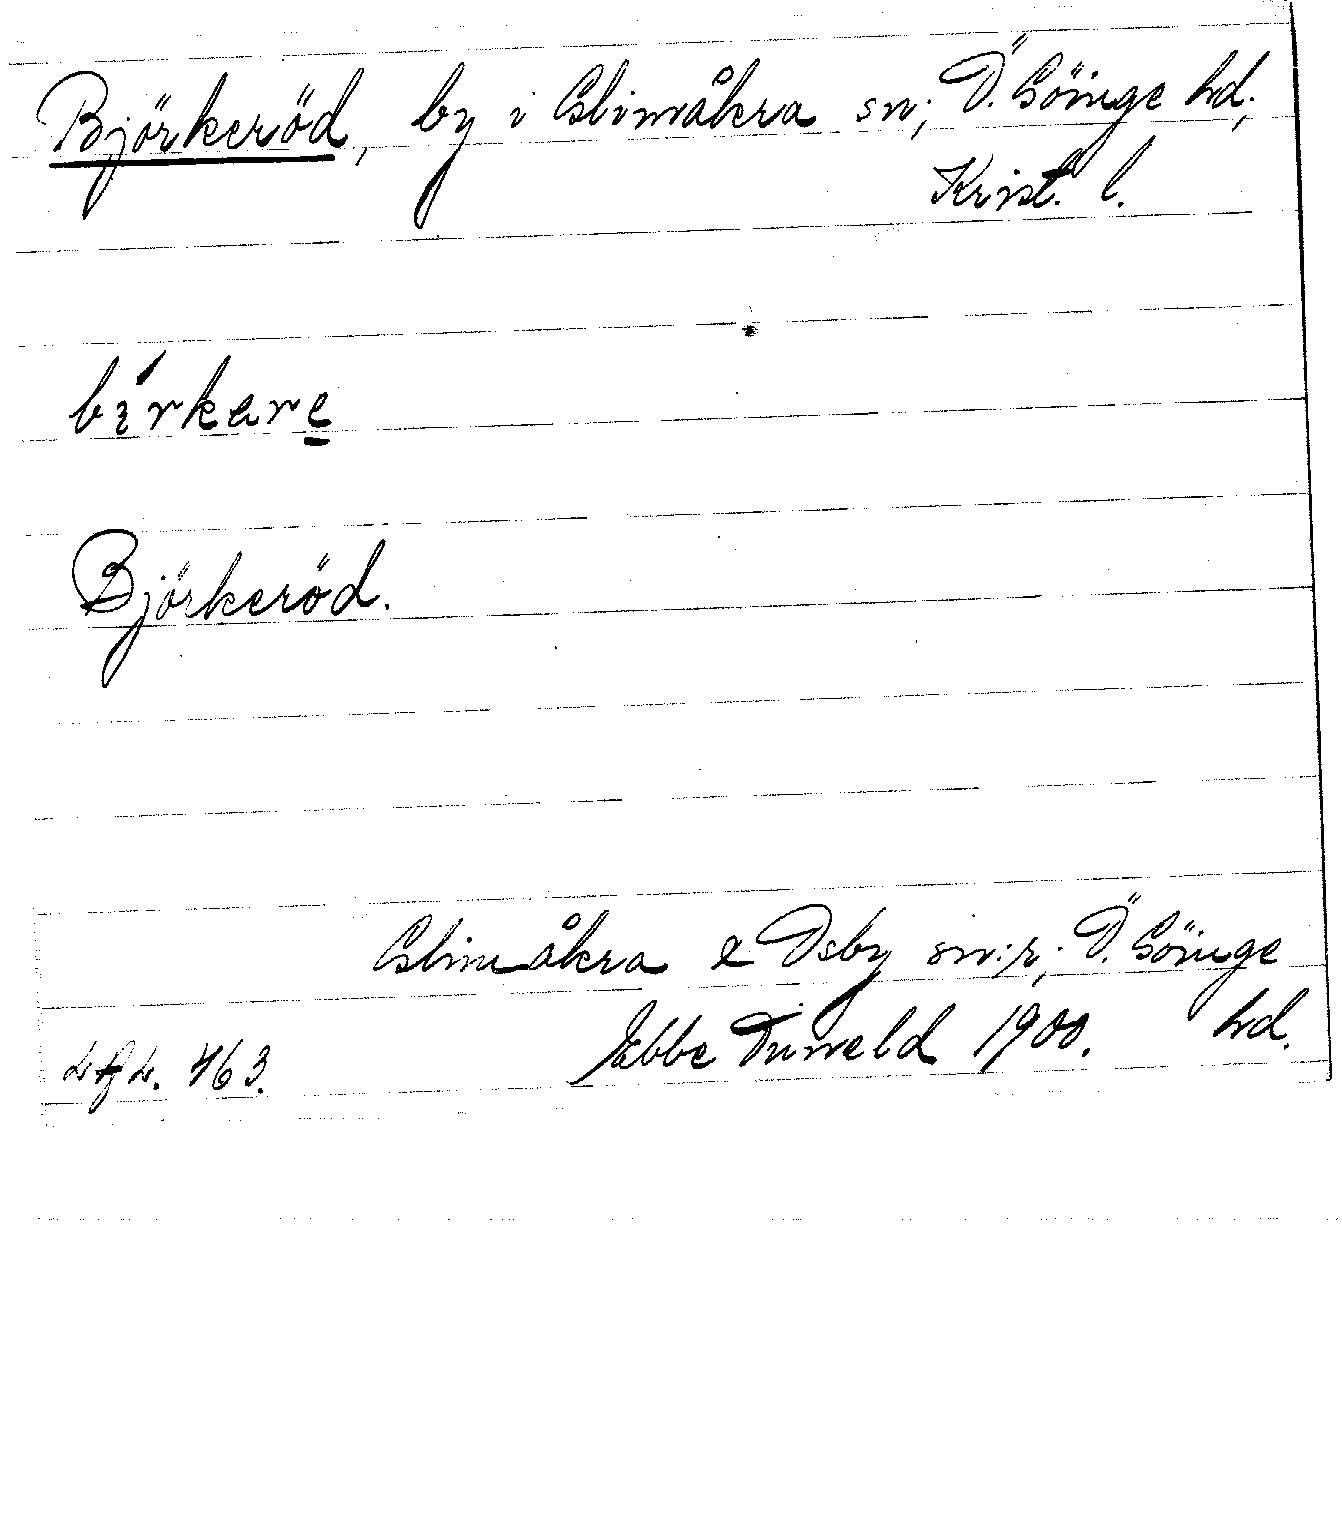 Björkeröd, by i Glimåkra sn; Ö. Göinge hd;
Krist. l.
bírkare
Björkeröd.
Glimåkra & Osby sn:r; Ö. Göinge
hd.
Ebbe Tuneld 1900.
463.